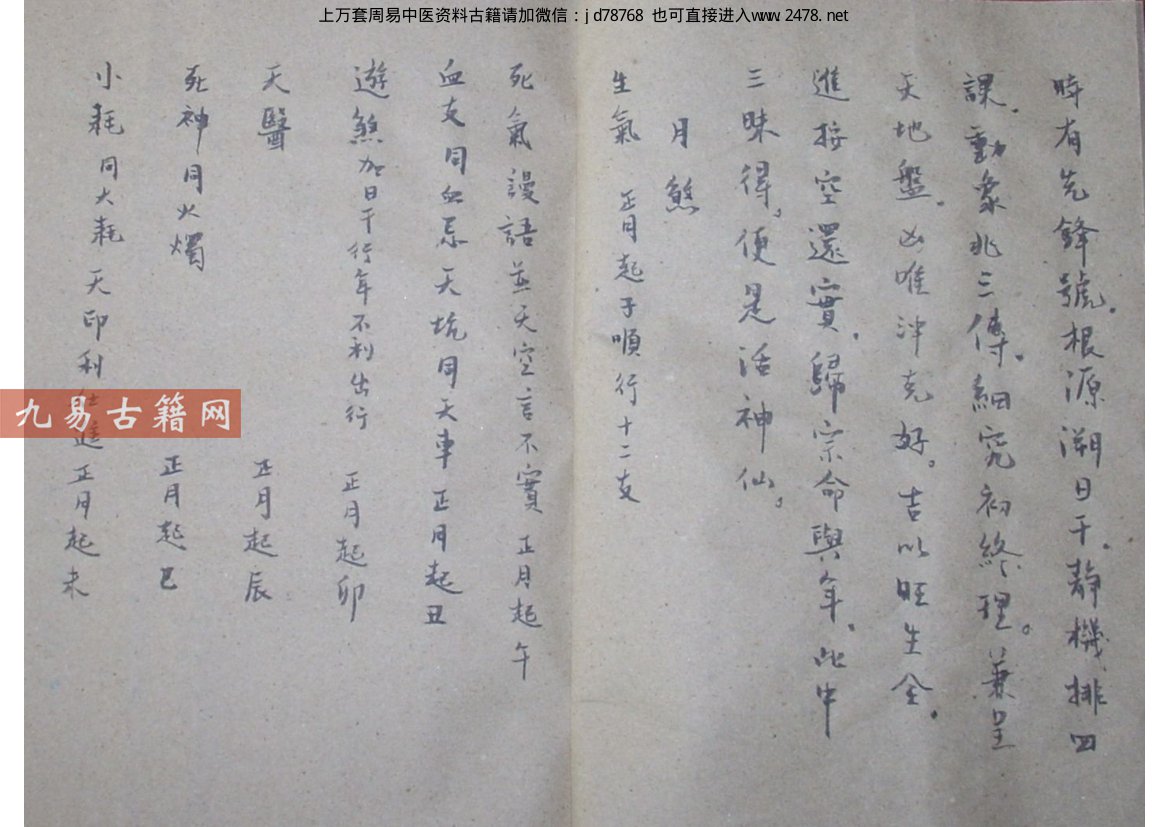 上万套周易中医资料古籍请加微信：jd78768 也可直接进入www.2478.net
時有先鋒號。根源溯日干。靜機排四
課。動象兆三傳。細究初終理。兼呈
天地盤。凶唯沖克好。吉以旺生全。
進按空還實。歸宗命與年。此中
三昧得。便是活神仙。
月煞
生氣 正月起子順行十二支
死氣謾語並天空言不實 正月起午
血支同血忌天坑同天車 正月起丑
遊煞加日干行年不利出行 正月起卯
天醫 正月起辰
死神同火燭 正月起巳
小耗同大耗 天印利 進 正月起未
九易古籍网